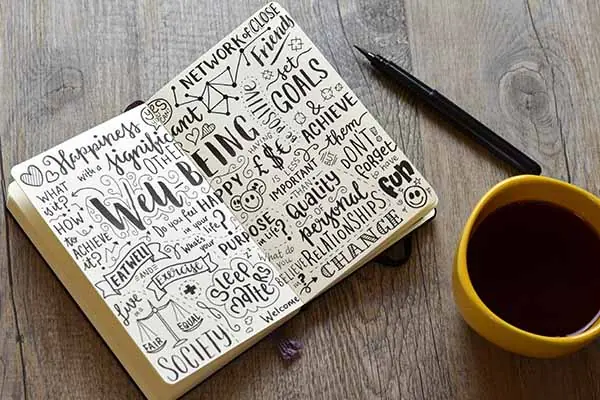 Happiness
with a significant
OTHER
WHAT
is it?
HOW
to
ACHIEVE
it?
Well BEING
Do you feel HAPPY
in your life?
What's
your
PURPOSE
in life?
EATWELL
AND
Exercise
Sleep
MATTERS
Live in a
FAIR
EQUAL
SOCIETY
NETWORK of CLOSE
Friends
YES
you
CAN
set
GOALS
&
ACHIEVE
them
£ € $
IS
IMPORTANT
DON'T
forget
to
HAVE
fun
Quality
of
personal
RELATIONSHIPS
What do
you
BELIEVE
in?
Welcome
CHANGE